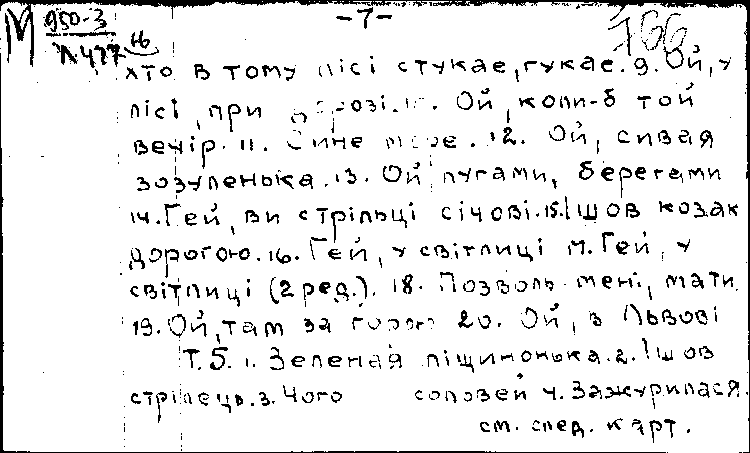 -7-
М 950-3 766
Л477
хто в тому лісі стукає, гукає. 9. Ой, у
лісі, при дорозі. 10. Ой, коли-б той
вечір. 11. Синє море. 12. Ой, сивая
зозуленька. 13. Ой лугами, берегами
14. Гей, ви стрільці січові. 15. Ішов козак
дорогою. 16. Гей, у світлиці 17. Гей, у
світлиці (2 ред.). 18. Позволь мені, мати
19. Ой, там за горою 20. Ой, в Львові
Т. 5. 1. Зеленая ліщинонька. 2. Ішов
стрілець. 3. Чого соловей 4. Зажурилася.
см. след. карт.